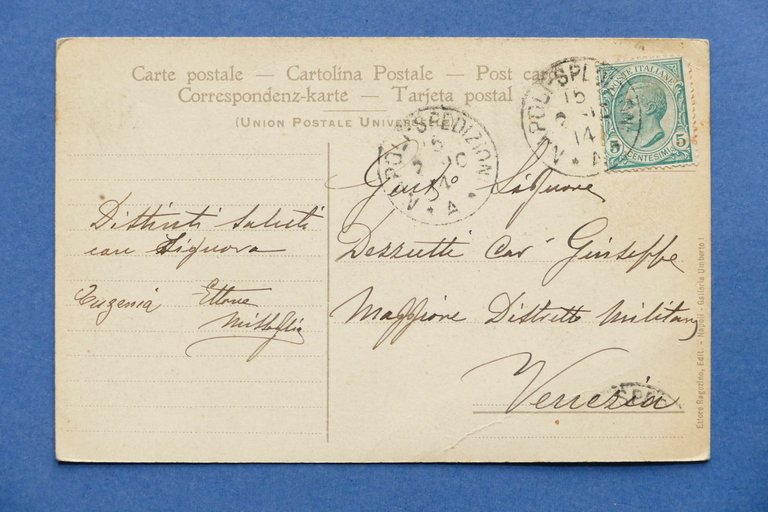 Carte postale — Cartolina Postale — Post card
Correspondenz-karte — Tarjeta postal
(UNION POSTALE UNIVERSELLE)
POSTE ITALIANE
5 5
CENTESIMI
POLI SPE
15
14
V ★ A
POLI SPEDIZION
V ★ A
Distinti saluti
Signora
Eugenia Ettore
Signore
Cav Giuseppe
Maggiore Distretto Militare
Venezia
Ettore Ragozino, Edit. - Napoli - Galleria Umberto I